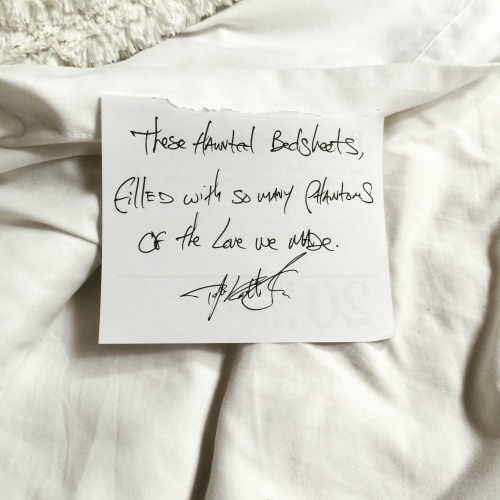 These Haunted Bedsheets,
Filled with so many Phantoms
Of the Love we made.